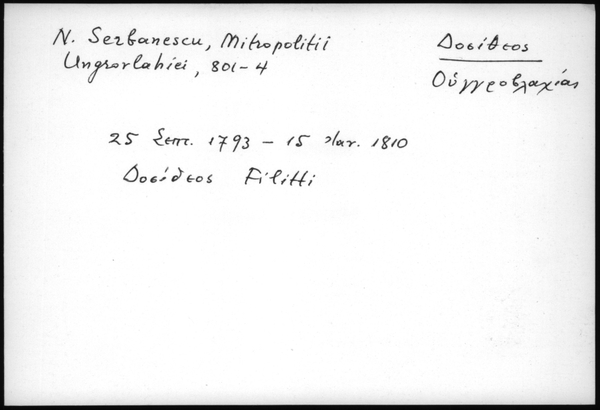 N. Serbanescu, Mitropolitii
Ungrovlahiei, 801-4
Δοσίθεος
Οὑγγροβλαχίας
25 Σεπτ. 1793 - 15 Ιαν. 1810
Δοσίθεος Filitti